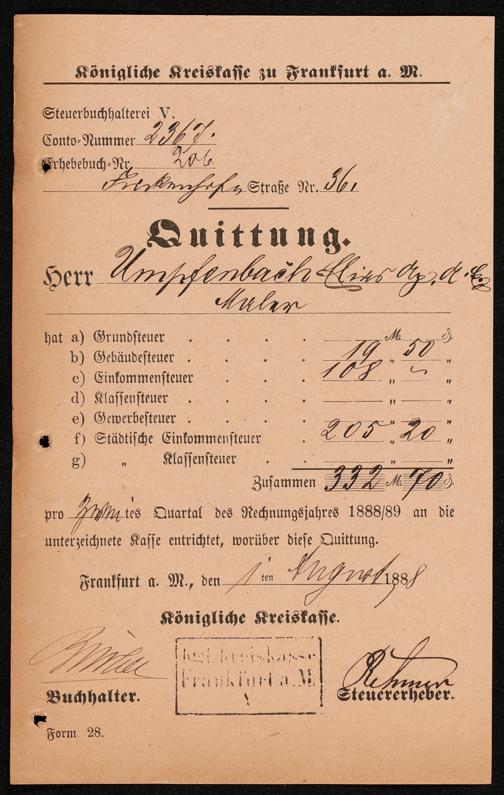 Königliche Kreiskasse zu Frankfurt a. M.
Steuerbuchhalterei V.
Conto-Nummer 2367.
Erhebebuch-Nr. 206
Straße Nr. 36.
Quittung.
Herr Umpfenbach Elias
Maler
hat a) Grundsteuer . . . . M. ₰
b) Gebäudesteuer . . . . 19 „ 50 „
c) Einkommensteuer . . . 108 „ „
d) Klassensteuer . . . . „ „
e) Gewerbesteuer . . . . „ „
f) Städtische Einkommensteuer . 205 „ 20 „
g) „ Klassensteuer . . „ „
Zusammen 332 M. 70 ₰
pro zweites Quartal des Rechnungsjahres 1888/89 an die
unterzeichnete Kasse entrichtet, worüber diese Quittung.
Frankfurt a. M., den 1 ten August 1888
Königliche Kreiskasse.
Kgl. Kreiskasse
Frankfurt a. M.
V
Buchhalter.
Steuererheber.
Form 28.